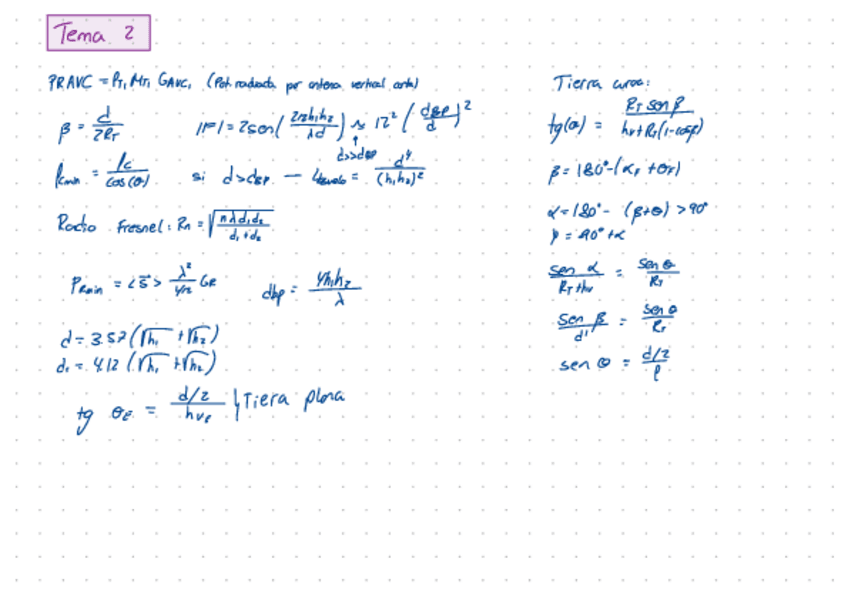 Tema 2
PRAVC = PT, MT, GAVC, (Pot. radiada por antena vertical corta)
β = d / 2RT
|F| = 2 sen( 2πh1h2 / λd ) ≈ 12² ( dBP / d )²
d>>dBP
fc / cos(θ)
si d > dBP — = d⁴ / (h1h2)²
Radio Fresnel: Rn = √( nλd1d2 / d1+d2 )
PRmin = <S> λ²/4π GR
dbp = 4h1h2 / λ
d = 3.57 (√h1 + √h2)
d1 = 4.12 (√h1 + √h2)
tg θE = d/2 / hvE } Tierra plana
Tierra curva:
tg(α) = RT sen β / hv+RT(1-cosβ)
β = 180°-(αF + θF)
α = 180° - (β+θ) > 90°
= 90° + α
sen α / RT+hv = sen θ / RT
sen β / d' = sen θ / RT
sen θ = d/2 / ρ